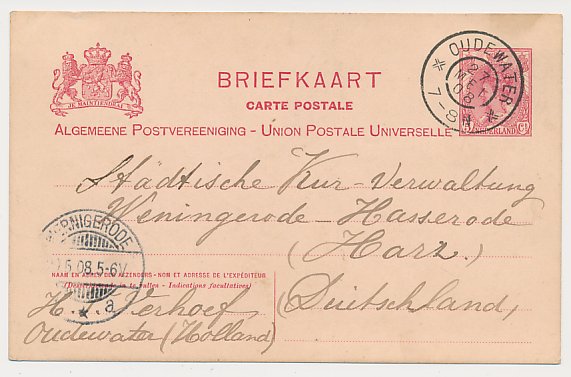 JE MAINTIENDRAI
BRIEFKAART
CARTE POSTALE
ALGEMEENE POSTVEREENIGING - UNION POSTALE UNIVERSELLE
OUDEWATER
27 MEI 08
7-8N
NEDERLAND
5 Ct
Städtische Kur-Verwaltung
Weningerode-Hasserode
(Harz.)
Duitschland,
WERNIGERODE
.5.08.5-6V
* a
NAAM EN ADRES DES AFZENDERS - NOM ET ADRESSE DE L'EXPÉDITEUR
(Desverkiezende in te vullen - Indications facultatives)
H. Verhoef,
Oudewater (Holland)